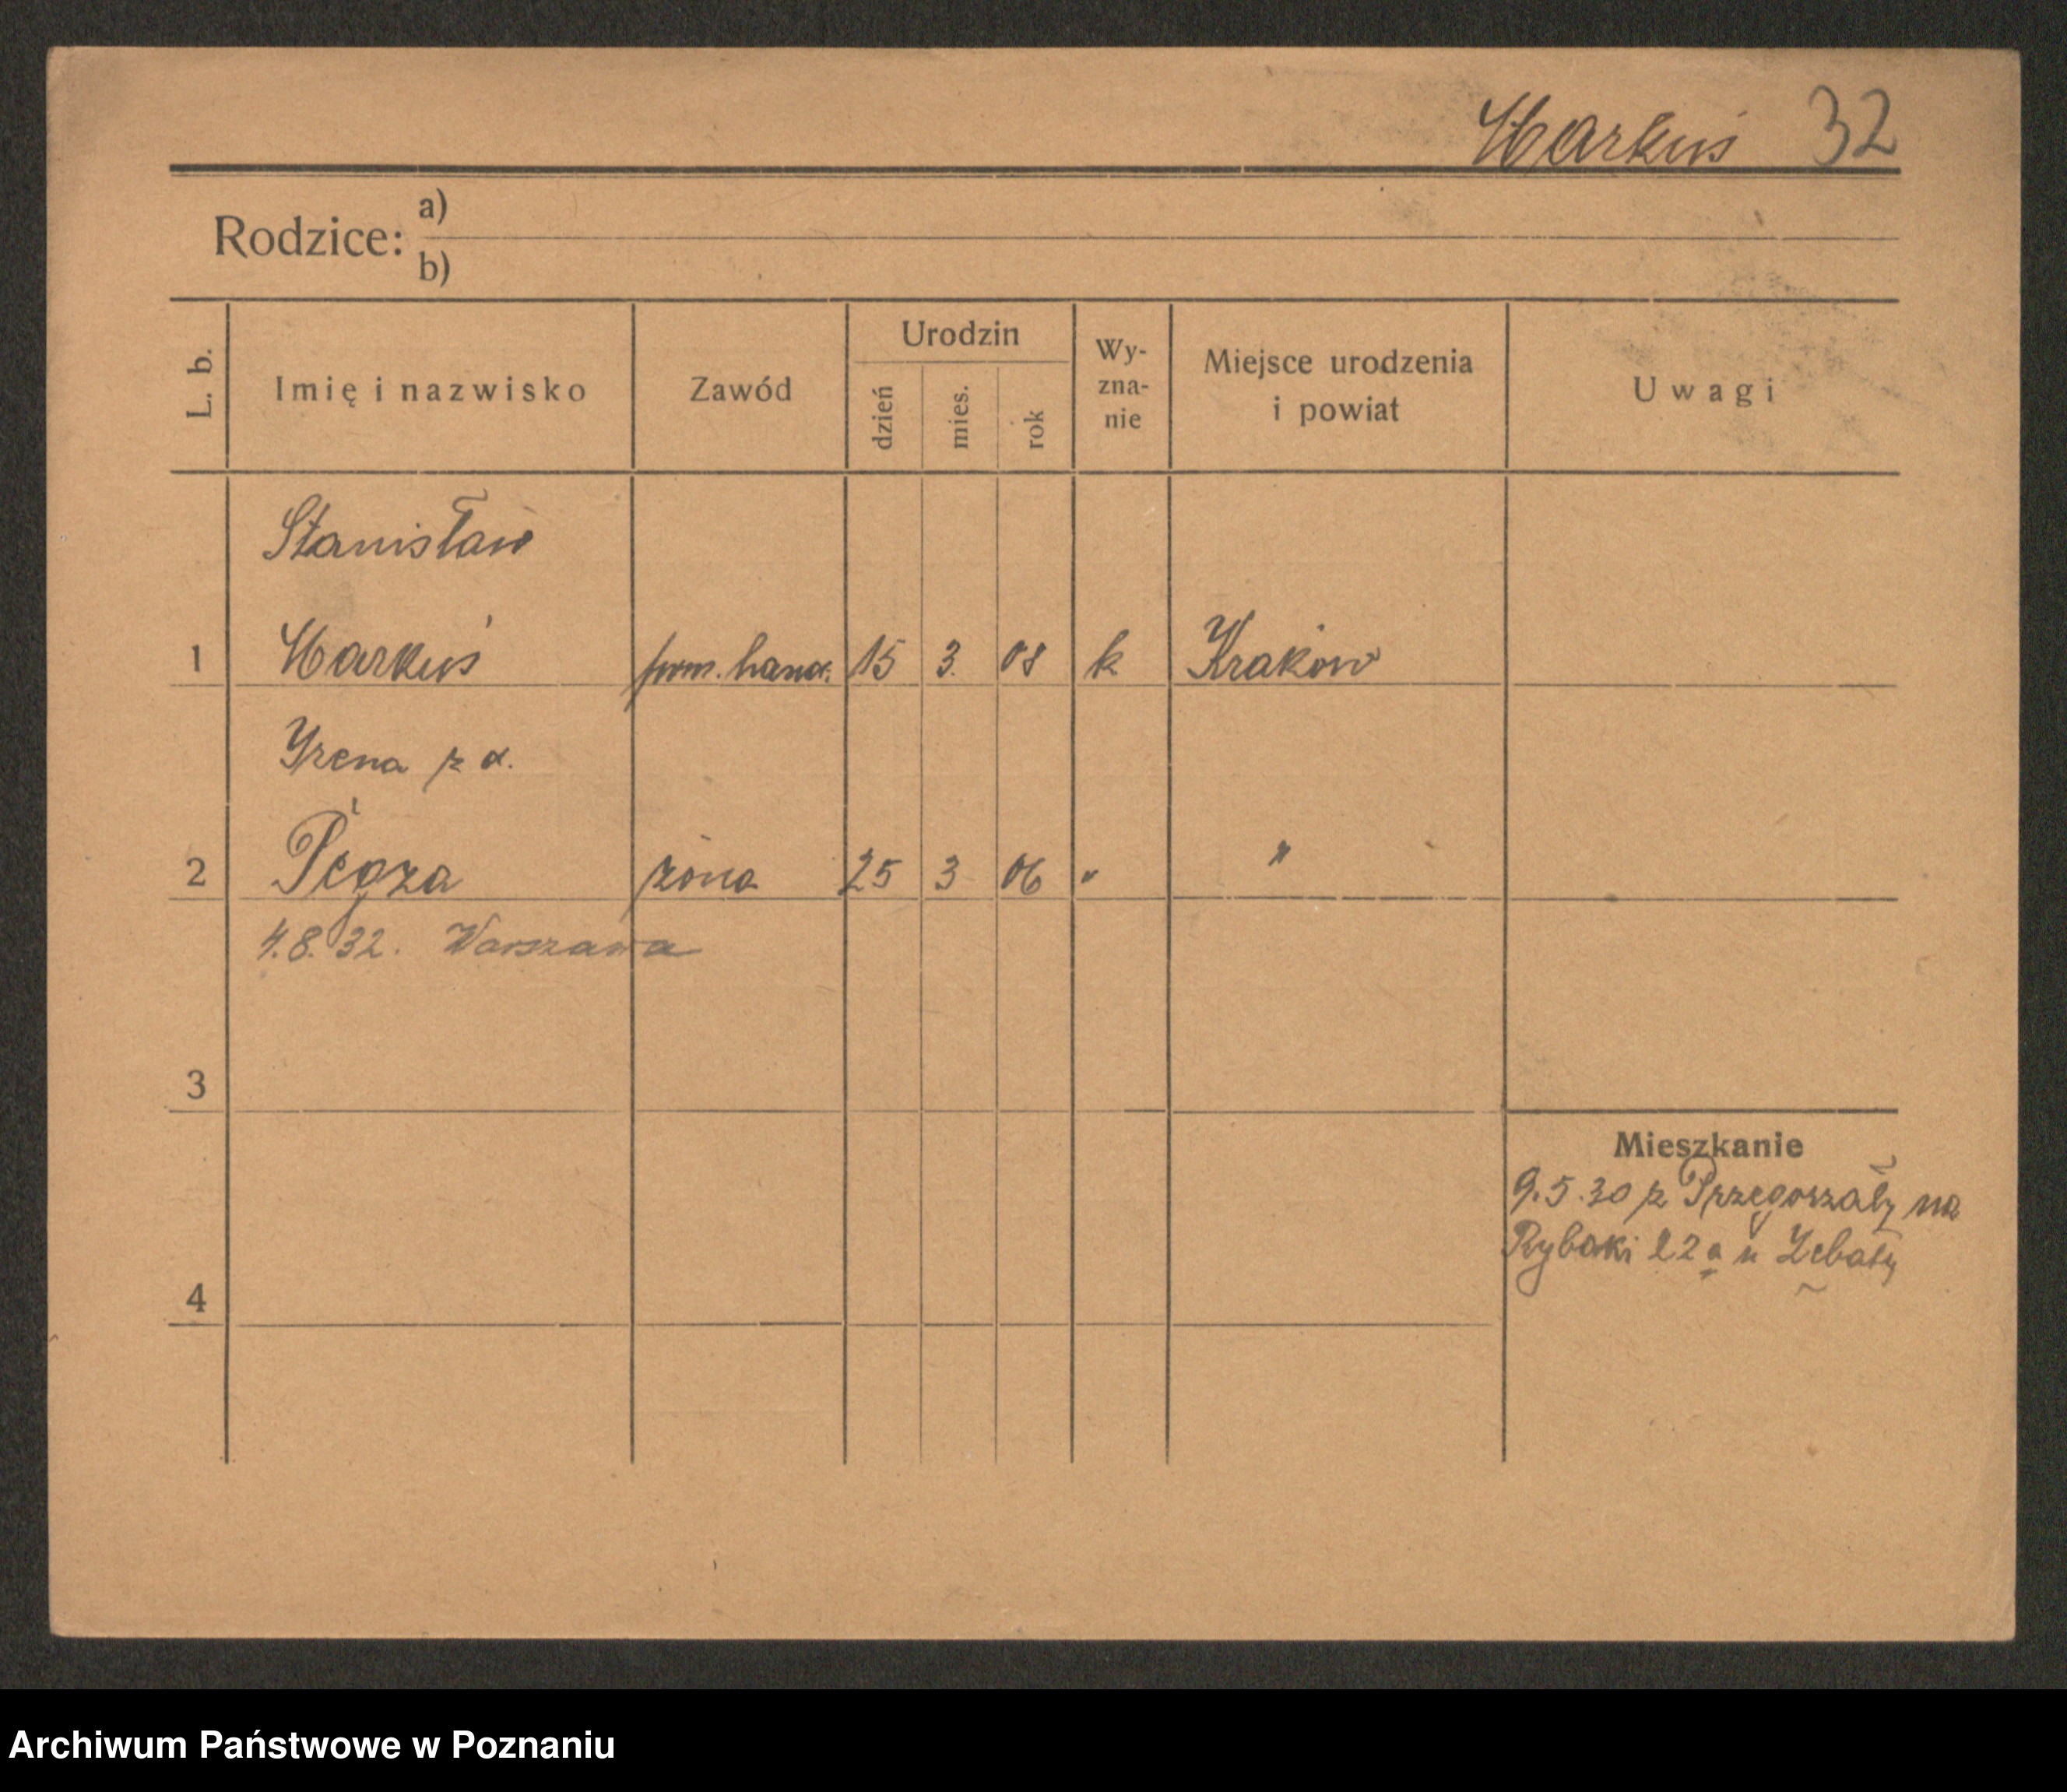 Markuś 32
Rodzice: a)
b)
L. b.
Imię i nazwisko
Zawód
Urodzin
dzień
mies.
rok
Wy-
zna-
nie
Miejsce urodzenia
i powiat
Uwagi
Stanisław
1 Markuś pom. hand. 15 3. 08 k Kraków
Yrena z d.
2 żona 25 3 06 " "
4.8.32. Warszawa
3
Mieszkanie
9.5.30 z Przegorzały na
Rybaki 22a u
4
Archiwum Państwowe w Poznaniu